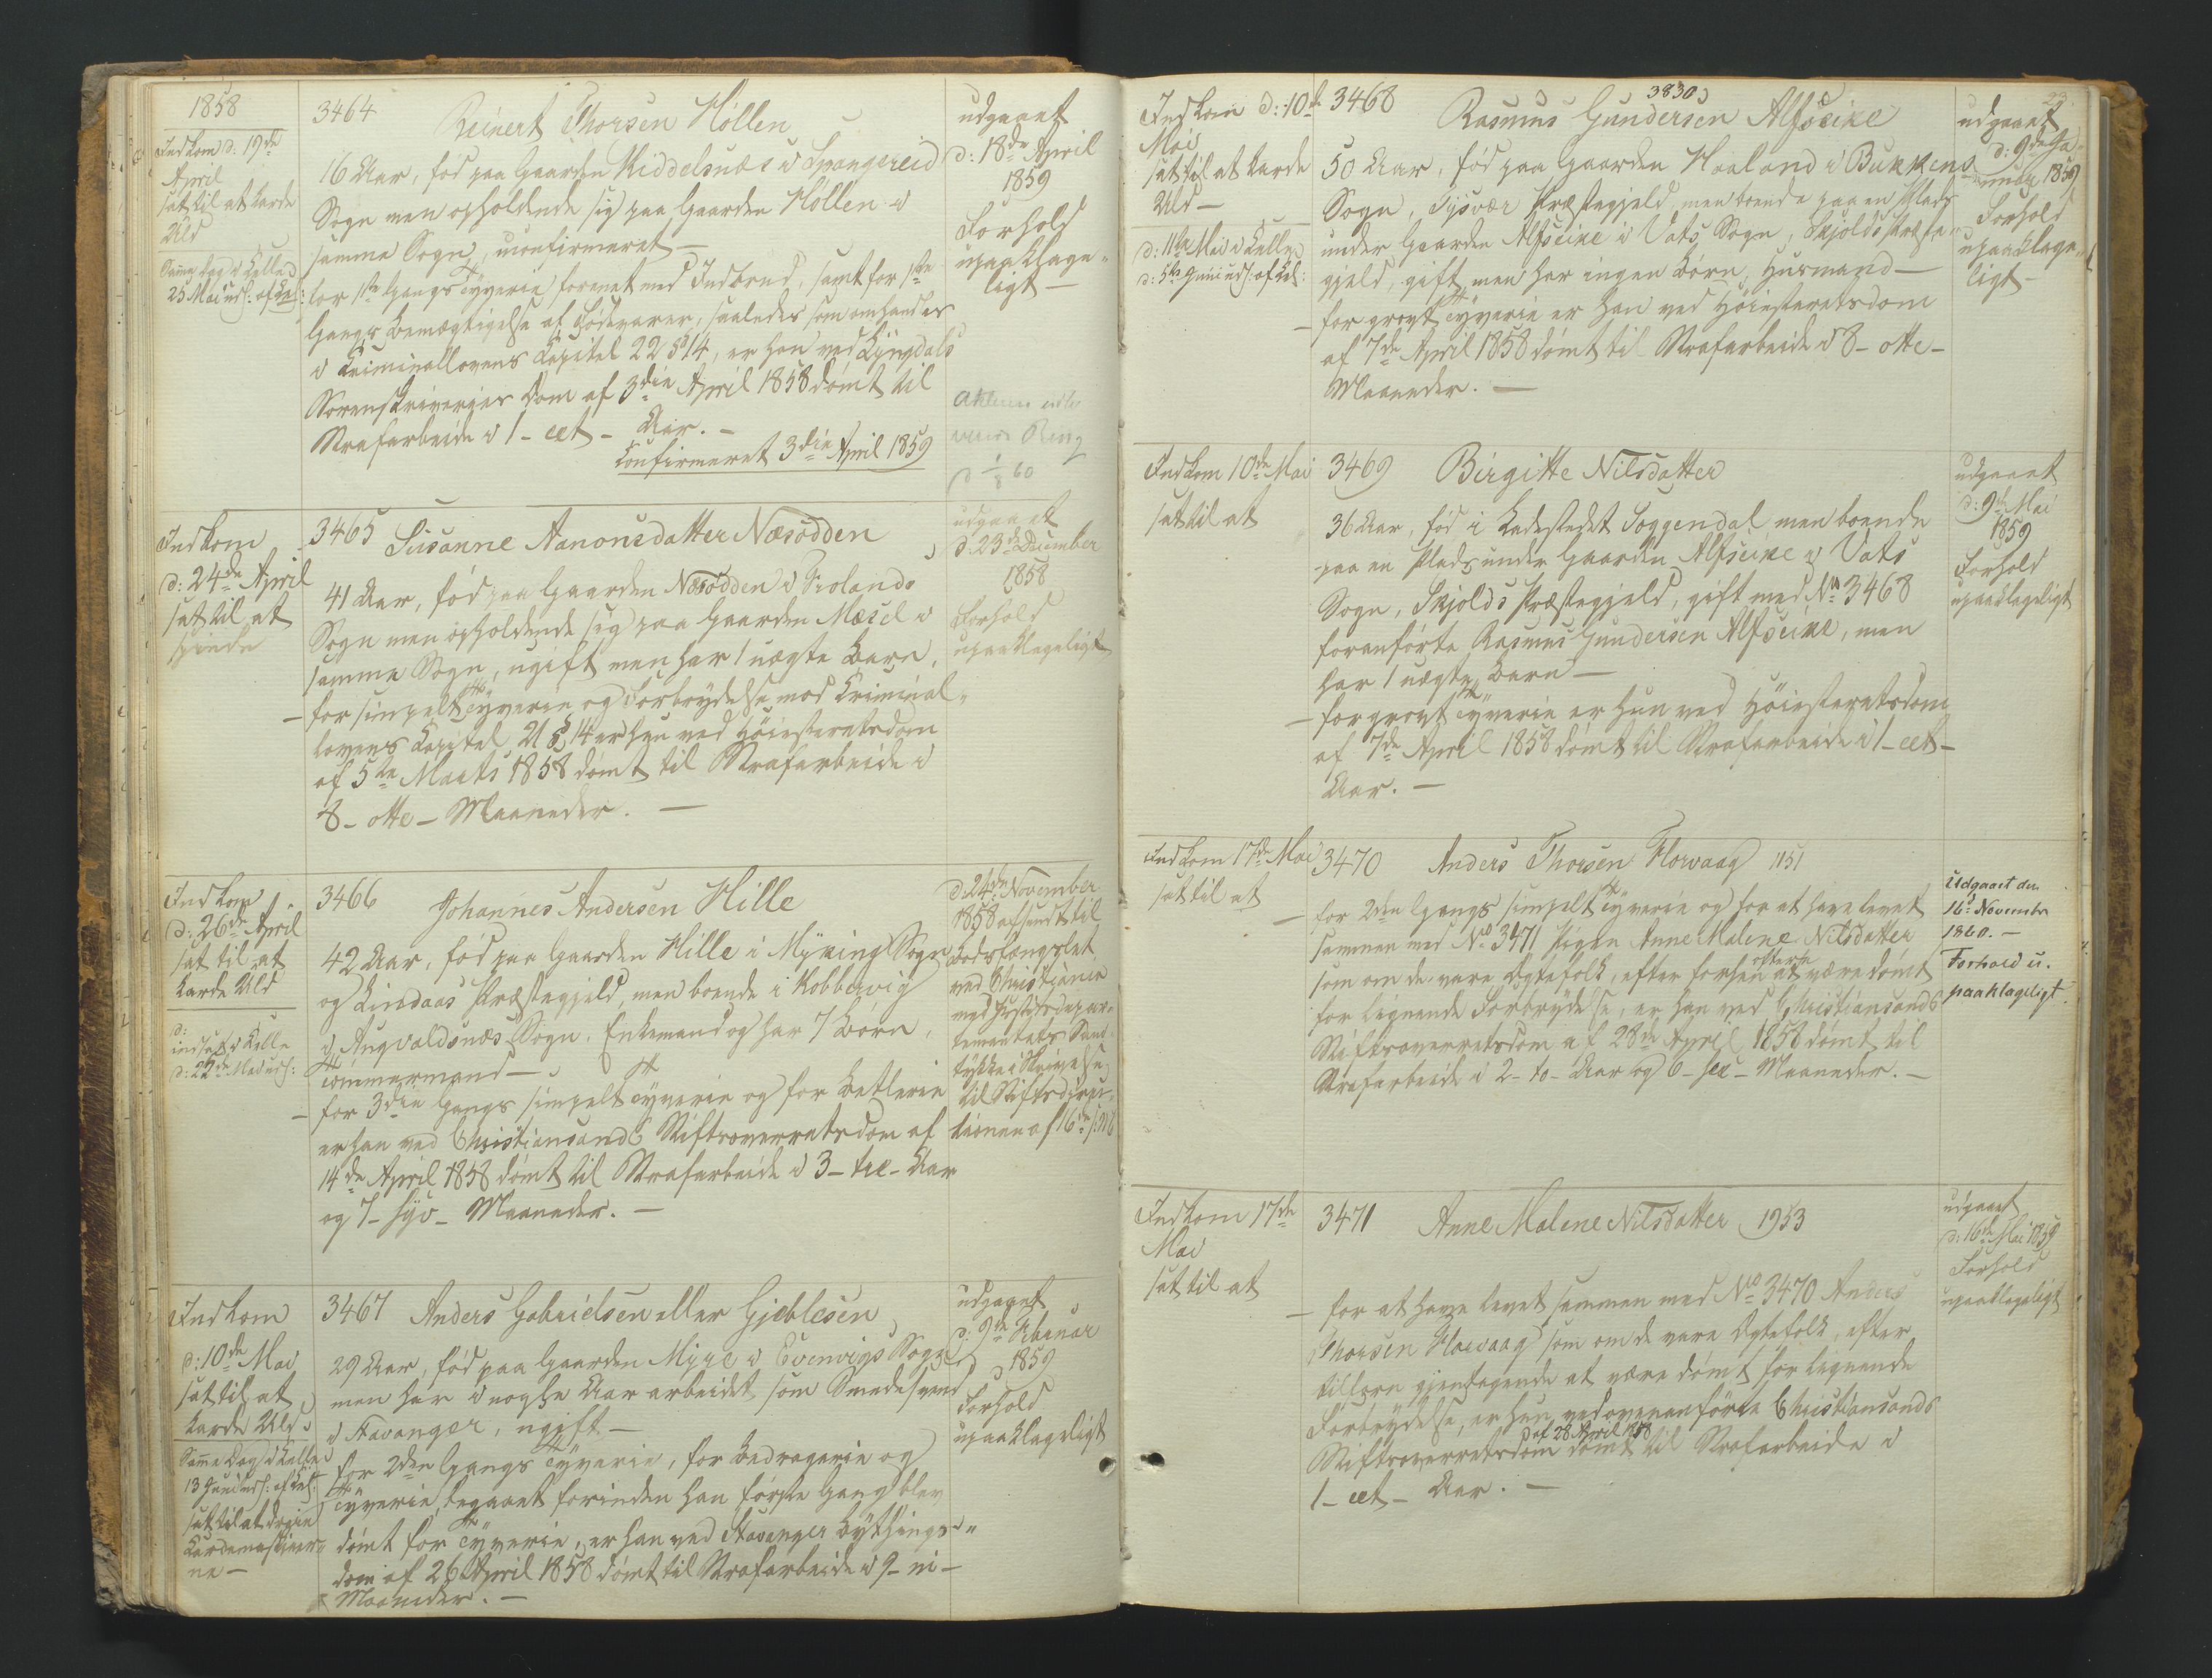 1858
Indkom d. 19de
April
sat til at karde
Uld
Samme Dag i Celle
25 Mai uds: af Cel:
3464 Reinert Thorsen Höllen
16 Aar, född paa Gaarden Middelsnæs i Spangereid
Sogn men opholdende sig paa Gaarden Höllen i
samme Sogn, uconfirmeret —
for 1ste Gangs Tyverie forenet med Indbrud, samt for 1ste
Gangs Bemægtigelse af Födevarer, saaledes som omhandles
i Criminallovens Capitel 22 § 14, er han ved Lyngdals
Sorenskriveries Dom af 3die April 1858 dömt til
Strafarbeide i 1 - eet - Aar. —
Confirmeret 3die April 1859
udgaaet
d: 18de April
1859
Forhold
upaaklage-
ligt —
Indkom
d: 24de April
sat til at
spinde
3465 Susanne Aanonsdatter Næsodden
41 Aar, föd paa Gaarden Næsodden i Frolands
Sogn men opholdende sig paa Gaarden Mæsel i
samme Sogn, ugift men har 1 uægte Barn,
— for simpelt Tyverie og Forbrydelse mod Criminal-
lovens Capitel 21 § 14 er hun ved Höiesteretsdom
af 5te Marts 1858 dömt til Strafarbeide i
8 - otte - Maaneder. —
udgaaet
d: 23de December
1858
Forhold
upaaklageligt
Indkom
d: 26de April
sat til at
karde Uld
d:
indsat i Celle
d: 22de Mai uds:
3466 Johannes Andersen Hille
42 Aar, föd paa Gaarden Hille i Myking Sogn
og Lindaas Præstegjeld, men boende i Kobbervig
i Augvaldsnæs Sogn. Enkemand og har 7 Börn,
Tömmermand —
— for 3die Gangs simpelt Tyverie og for Betlerie
er han ved Christiansands Stiftsoverretsdom af
14de April 1858 dömt til Strafarbeide i 3 - tre - Aar
og 7 - syv - Maaneder. —
d: 24de November
1858 afsendt til
Bodsfængslet
ved Christiania
med Justitsdepar-
tementets Sam-
tykke i Skrivelse
til Stiftsdirec-
tionen af 16de s: M:
Indkom
d: 10de Mai
sat til at
karde Uld
Samme Dag i Celle
13 Juni uds: af Cel:
sat til at dreie
Kardemaskiner-
ne —
3467 Anders Gabrielsen eller Gjeblesen
29 Aar, föd paa Gaarden Myre i Evenvigs Sogn
men har i nogle Aar arbeidet som Smedesvend
i Stavanger, ugift —
for 2den Gangs Tyverie, for Bedragerie og
Tyverie, begaaet forinden han förste Gang blev
dömt for Tyverie, er han ved Stavanger Bythings-
dom af 26 April 1858 dömt til Strafarbeide i 9 - ni -
Maaneder. —
udgaaet
d: 9de Februar
1859
Forhold
upaaklageligt
23.
Indkom d: 10de
Mai
sat til at karde
Uld —
d: 11te Mai i Celle
d: 5te Juni uds: af Cel:
3830
3468 Rasmus Gundersen Alfseike
50 Aar, föd paa Gaarden Haaland i Bukkens
Sogn, Tysvær Præstegjeld, men boende paa en Plads
under Gaarden Alfseike i Vats Sogn, Skjolds Præste-
gjeld, gift men har ingen Börn, Husmand —
— for grovt Tyverie er han ved Höiesteretsdom
af 7de April 1858 dömt til Strafarbeide i 8 - otte -
Maaneder. —
udgaaet
d: 9de Ja-
nuar 1859
Forhold
upaaklage-
ligt —
Indkom 10de Mai
sat til at
3469 Birgitte Nilsdatter
36 Aar, föd i Ladestedet Soggendal men boende
paa en Plads under Gaarden Alfseike i Vats
Sogn, Skjolds Præstegjeld, gift med No 3468
foranförte Rasmus Gundersen Alfseike, men
har 1 uægte Barn —
— for grovt Tyverie er hun ved Höiesteretsdom
af 7de April 1858 dömt til Strafarbeide i 1 - eet -
Aar. —
udgaaet
d: 9de Mai
1859
Forhold
upaaklageligt
Indkom 17de Mai
sat til at
3470 Anders Thorsen Horvaag 1151
— for 2den Gangs simpelt Tyverie og for at have levet
sammen med No 3471 Pigen Anne Malene Nilsdatter
som om de vare Ægtefolk, efter forhen oftere at være dömt
for lignende Forbrydelse, er han ved Christiansands
Stiftsoverretsdom af 28de April 1858 dömt til
Strafarbeide i 2 - to - Aar og 6 - sex - Maaneder. —
Udgaaet den
16de November
1860. —
Forhold u.
paaklageligt.
Indkom 17de
Mai
sat til at
3471 Anne Malene Nilsdatter 1953
— for at have levet sammen med No 3470 Anders
Thorsen Horvaag som om de vare Ægtefolk, efter
tilforn gjentagende at være dömt for lignende
Forbrydelse, er hun ved ovenanförte Christiansands
Stiftsoverretsdom af 28 April 1858 dömt til Strafarbeide i
1 - eet - Aar. —
udgaaet
d: 16de Mai 1859
Forhold
upaaklageligt